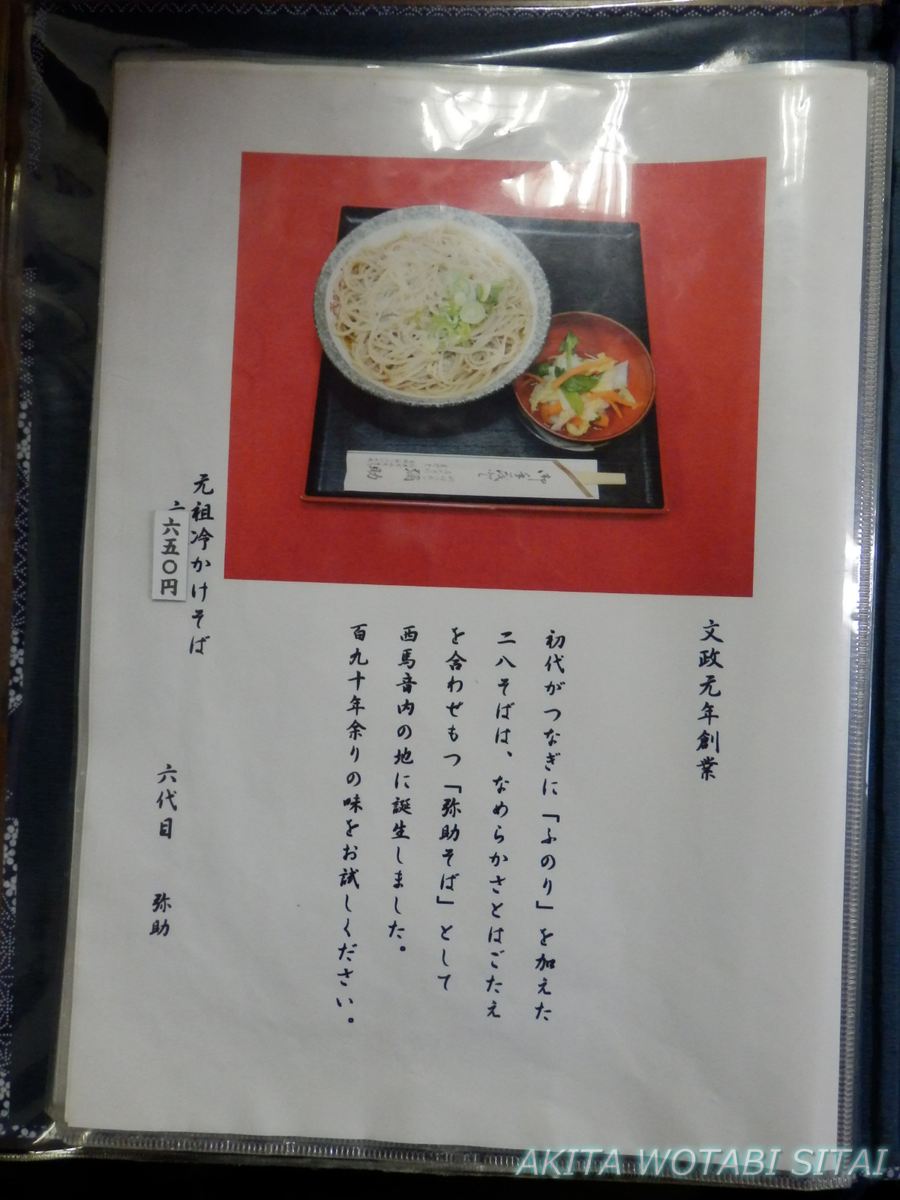 文政元年創業
初代がつなぎに「ふのり」を加えた
二八そばは、なめらかさとはごたえ
を合わせもつ「弥助そば」として
西馬音内の地に誕生しました。
百九十年余りの味をお試しください。
元祖冷かけそば
六五〇円
六代目 弥助
弥助
AKITA WOTABI SITAI